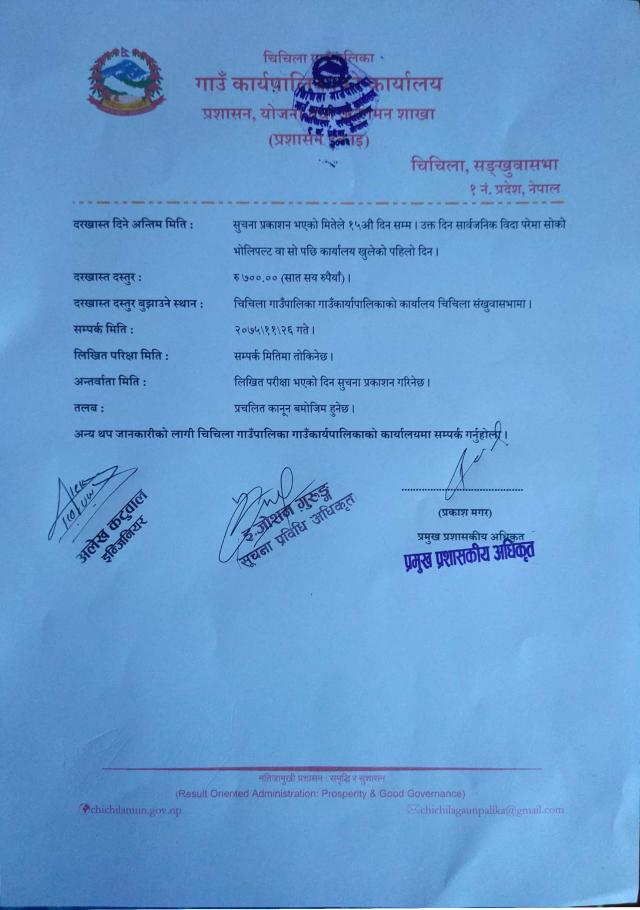 चिचिला गाउँपालिका
गाउँ कार्यपालिकाको कार्यालय
प्रशासन, योजना अनुगमन शाखा
(प्रशासन इकाइ)
चिचिला, सङ्खुवासभा
१ नं. प्रदेश, नेपाल
दरखास्त दिने अन्तिम मिति : सुचना प्रकाशन भएको मितेले १५औ दिन सम्म । उक्त दिन सार्वजनिक विदा परेमा सोको
भोलिपल्ट वा सो पछि कार्यालय खुलेको पहिलो दिन ।
दरखास्त दस्तुर : रु ७००.०० (सात सय रुपैयाँ) ।
दरखास्त दस्तुर बुझाउने स्थान : चिचिला गाउँपालिका गाउँकार्यापालिकाको कार्यालय चिचिला संखुवासभामा ।
सम्पर्क मिति : २०७५\११\२६ गते ।
लिखित परिक्षा मिति : सम्पर्क मितिमा तोकिनेछ ।
अन्तर्वाता मिति : लिखित परीक्षा भएको दिन सुचना प्रकाशन गरिनेछ ।
तलब : प्रचलित कानून बमोजिम हुनेछ ।
अन्य थप जानकारीको लागी चिचिला गाउँपालिका गाउँकार्यपालिकाको कार्यालयमा सम्पर्क गर्नुहोला ।
अलेख कटुवाल
इन्जिनियर
इ.जोशन गुरुङ्ग
सूचना प्रविधि अधिकृत
(प्रकाश मगर)
प्रमुख प्रशासकीय अधिकृत
प्रमुख प्रशासकीय अधिकृत
नतिजामुखी प्रशासन : समृद्धि र सुशासन
(Result Oriented Administration: Prosperity & Good Governance)
chichilamun.gov.np
chichilagaunpalika@gmail.com